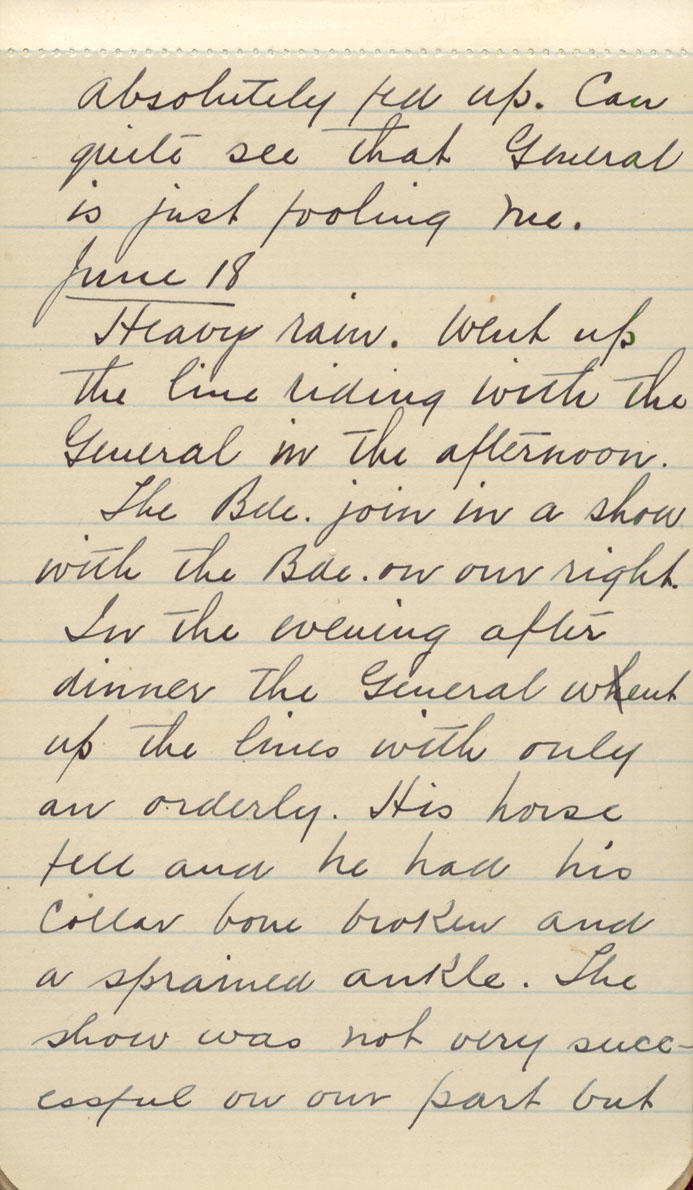 Absolutely fed up. Can
quite see that General
is just fooling me.
June 18
Heavy rain. Went up
the line riding with the
General in the afternoon.
The Bde. join in a show
with the Bde. on our right.
In the evening after
dinner the General went
up the lines with only
an orderly. His horse
fell and he had his
collar bone broken and
a sprained ankle. The
show was not very succ-
essful on our part but